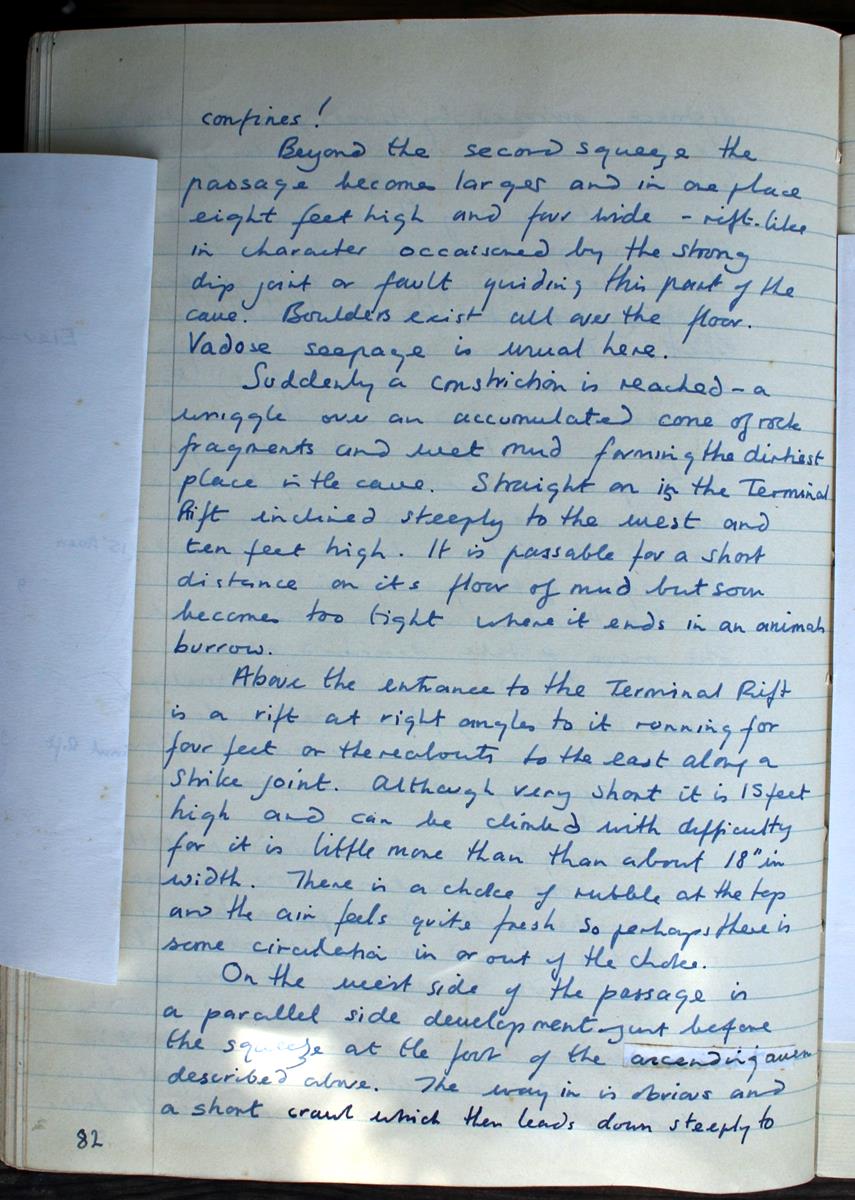 confines!
Beyond the second squeeze the
passage becomes larger and in one place
eight feet high and four wide - rift-like
in character occaisoned by the strong
dip joint or fault guiding this part of the
cave. Boulders exist all over the floor.
Vadose seepage is usual here.
Suddenly a constriction is reached - a
wriggle over an accumulated cone of rock
fragments and wet mud forming the dirtiest
place in the cave. Straight on is the Terminal
Rift inclined steeply to the west and
ten feet high. It is passable for a short
distance on its floor of mud but soon
becomes too tight where it ends in an animals
burrow.
Above the entrance to the Terminal Rift
is a rift at right angles to it running for
four feet or thereabouts to the east along a
strike joint. Although very short it is 15 feet
high and can be climbed with difficulty
for it is little more than than about 18" in
width. There is a choke of rubble at the top
and the air feels quite fresh so perhaps there is
some circulation in or out of the choke.
On the west side of the passage is
a parallel side development just before
the squeeze at the foot of the ascending aven
described above. The way in is obvious and
a short crawl which then leads down steeply to
82